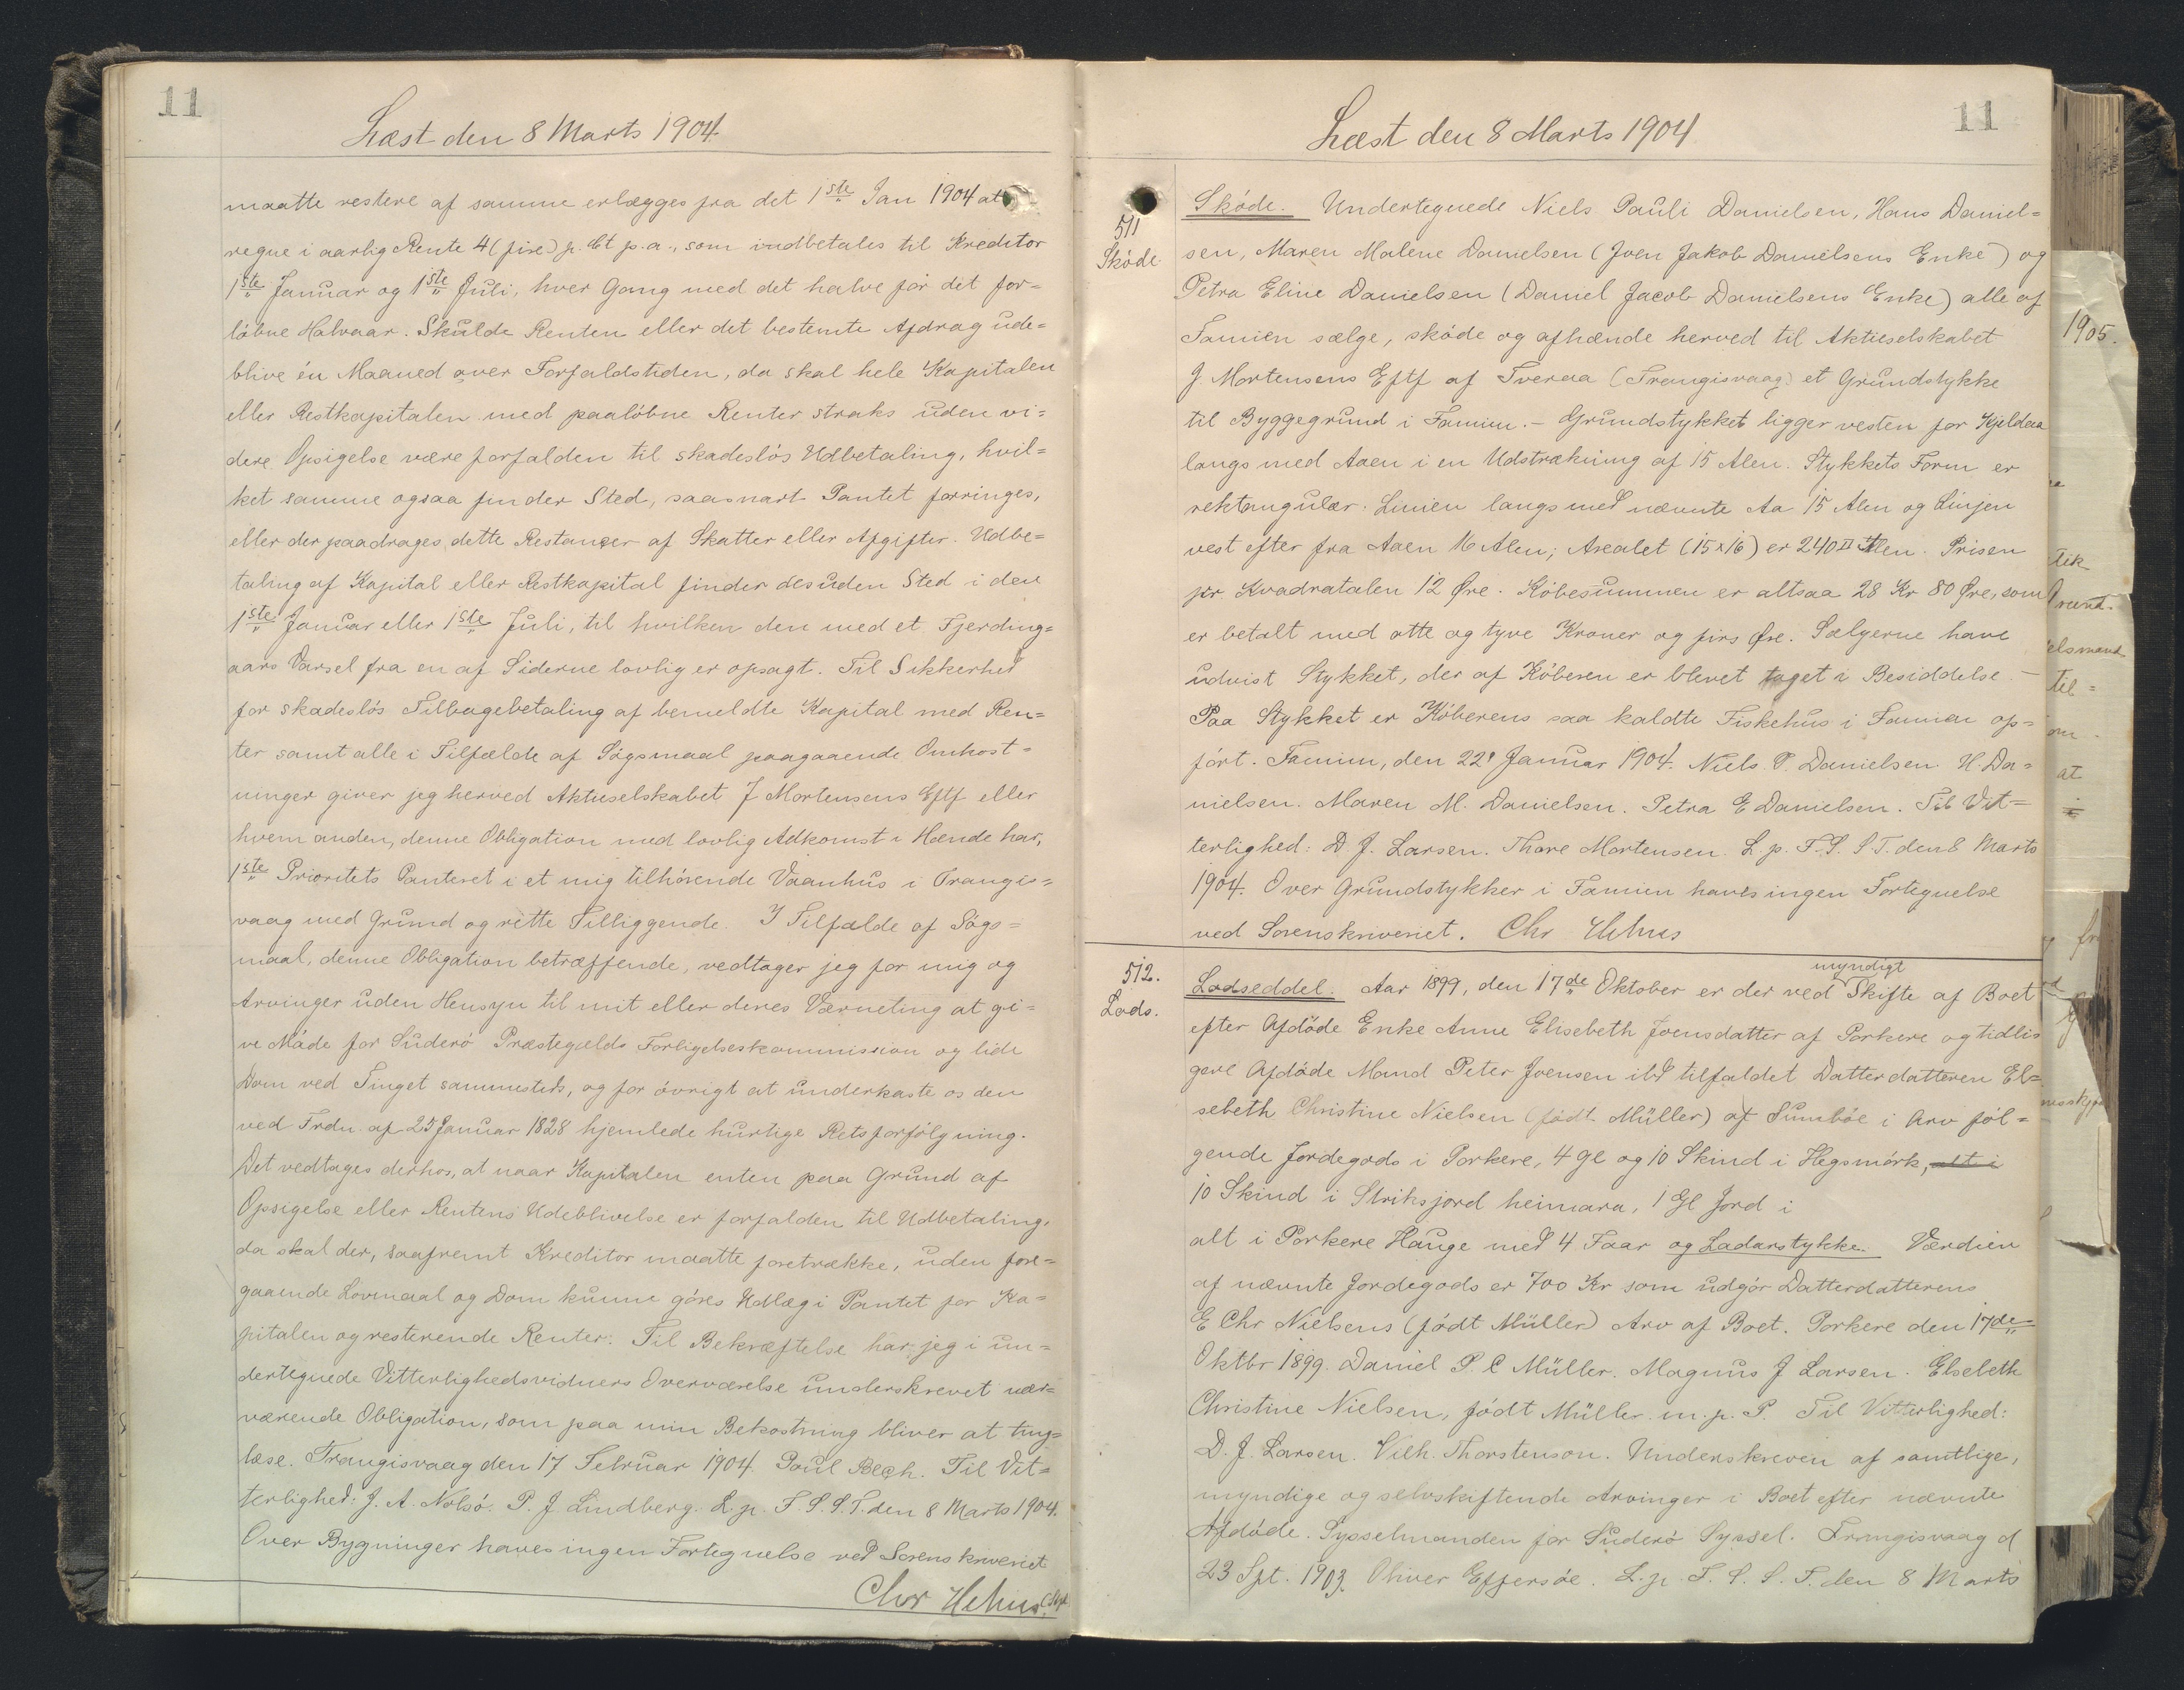 11
Læst den 8 Marts 1904.
maatte restere af samme erlægges fra det 1ste Jan 1904 at
regne i aarlig Rente 4 (fire) p. Ct p.a., som indbetales til Kreditor
1ste Januar og 1ste Juli, hver Gang med det halve for det for=
løbne Halvaar. Skulde Renten eller det bestemte Afdrag ude=
blive én Maaned over Forfaldstiden, da skal hele Kapitalen
eller Restkapitalen med paaløbne Renter straks uden vi=
dere Opsigelse være forfalden til skadesløs Udbetaling, hvil=
ket samme ogsaa finder Sted, saasnart Pantet forringes,
eller der paadrages dette Restancer af Skatter eller Afgifter. Udbe=
taling af Kapital eller Restkapital finder desuden Sted i den
1ste Januar eller 1ste Juli, til hvilken den med et Fjerding=
aars Varsel fra en af Siderne lovlig er opsagt. Til Sikkerhed
for skadesløs Tilbagebetaling af bemeldte Kapital med Ren=
ter samt alle i Tilfælde af Søgsmaal paagaaende Omkost=
ninger giver jeg herved Aktieselskabet J Mortensens Eftf eller
hvem anden, denne Obligation med lovlig Adkomst i Hænde har,
1ste Prioritets Panteret i et mig tilhørende Vaanhus i Trangis=
vaag med Grund og rette Tilliggende. I Tilfælde af Søgs=
maal, denne Obligation betræffende, vedtager jeg for mig og
Arvinger uden Hensyn til mit eller deres Værneting at gi=
ve Møde for Suderø Præstegjelds Forligelseskommission og lide
Dom ved Tinget sammesteds, og for øvrigt at underkaste os den
ved Frdn. af 25 Januar 1828 hjemlede hurtige Retsforfølgning.
Det vedtages derhos, at naar Kapitalen enten paa Grund af
Opsigelse eller Rentens Udeblivelse er forfalden til Udbetaling,
da skal der, saafremt Kreditor maatte foretrække, uden fore=
gaaende Lovmaal og Dom kunne gøres Udlæg i Pantet for Ka=
pitalen og resterende Renter. Til Bekræftelse har jeg i un=
dertegnede Vitterlighedsvidners Overværelse underskrevet nær=
værende Obligation, som paa min Bekostning bliver at ting=
læse. Trangisvaag den 17 Februar 1904. Poul Bech. Til Vit=
terlighed: J. A. Nolsø. P. J. Lindberg. L. p. F. S. S. T. den 8 Marts 1904.
Over Bygninger haves ingen Fortegnelse ved Sorenskriveriet
Chr
11
Læst den 8 Marts 1904
511
Skøde
Skøde. Undertegnede Niels Pauli Danielsen, Hans Daniel=
sen, Maren Malene Danielsen (Joen Jakob Danielsens Enke) og
Petra Eline Danielsen (Daniel Jacob Danielsens Enke) alle af
Famien sælge, skøde og afhænde herved til Aktieselskabet
J. Mortensens Eftf af Tveraa (Trangisvaag) et Grundstykke
til Byggegrund i Famien. - Grundstykket ligger vesten for Kjeldeaa
langs med Aaen i en Udstrækning af 15 Alen. Stykkets Form er
rektangulær. Linien langs med nævnte Aa 15 Alen og Linjen
vest efter fra Aaen 16 Alen; Arealet (15 x 16) er 240 □ Alen. Prisen
pr Kvadratalen 12 Øre. Købesummen er altsaa 28 Kr 80 Øre, som
er betalt med otte og tyve Kroner og firs Øre. Sælgerne have
udvist Stykket, der af Køberen er blevet taget i Besiddelse. -
Paa Stykket er Køberens saa kaldte Fiskehus i Famien op=
ført. Famien, den 22' Januar 1904. Niels P. Danielsen. H. Da=
nielsen. Maren M. Danielsen. Petra E Danielsen. Til Vit=
terlighed: D. J. Larsen. Thore Mortensen. L. p. F. S. S. T. den 8 Marts
1904. Over Grundstykker i Famien haves ingen Fortegnelse
ved Sorenskriveriet. Chr
512.
Lods.
myndigt
Lodseddel. Aar 1899, den 17de Oktober er der ved Skifte af Boet
efter Afdøde Enke Anne Elisebeth Joensdatter af Porkere og tidli=
gere Afdøde Mand Peter Joensen ibd tilfaldet Datterdatteren El=
sebeth Christine Nielsen (født Müller) af Sumbøe i Arv føl=
gende Jordegods i Porkere, 4 Gl og 10 Skind i Hegsmørk, alt i
10 Skind i Striksjord heimara, 1 Gl Jord i
alt i Porkere Hauge med 4 Faar og Ladarstykke. Værdien
af nævnte Jordegods er 700 Kr som udgør Datterdatterens
E Chr Nielsens (født Müller) Arv af Boet. Porkere den 17de
Oktbr 1899. Daniel P. C Müller. Magnus J Larsen. Elsebeth
Christine Nielsen, født Müller. m. p. P. Til Vitterlighed:
D. J. Larsen. Vilh. Thorstenson. Underskreven af samtlige,
myndige og selvskiftende Arvinger i Boet efter nævnte
Afdøde. Sysselmanden for Suderø Syssel. Trangisvaag d
23 Spt. 1903. Oliver Effersøe. L. p. F. S. S. T. den 8 Marts
1905.